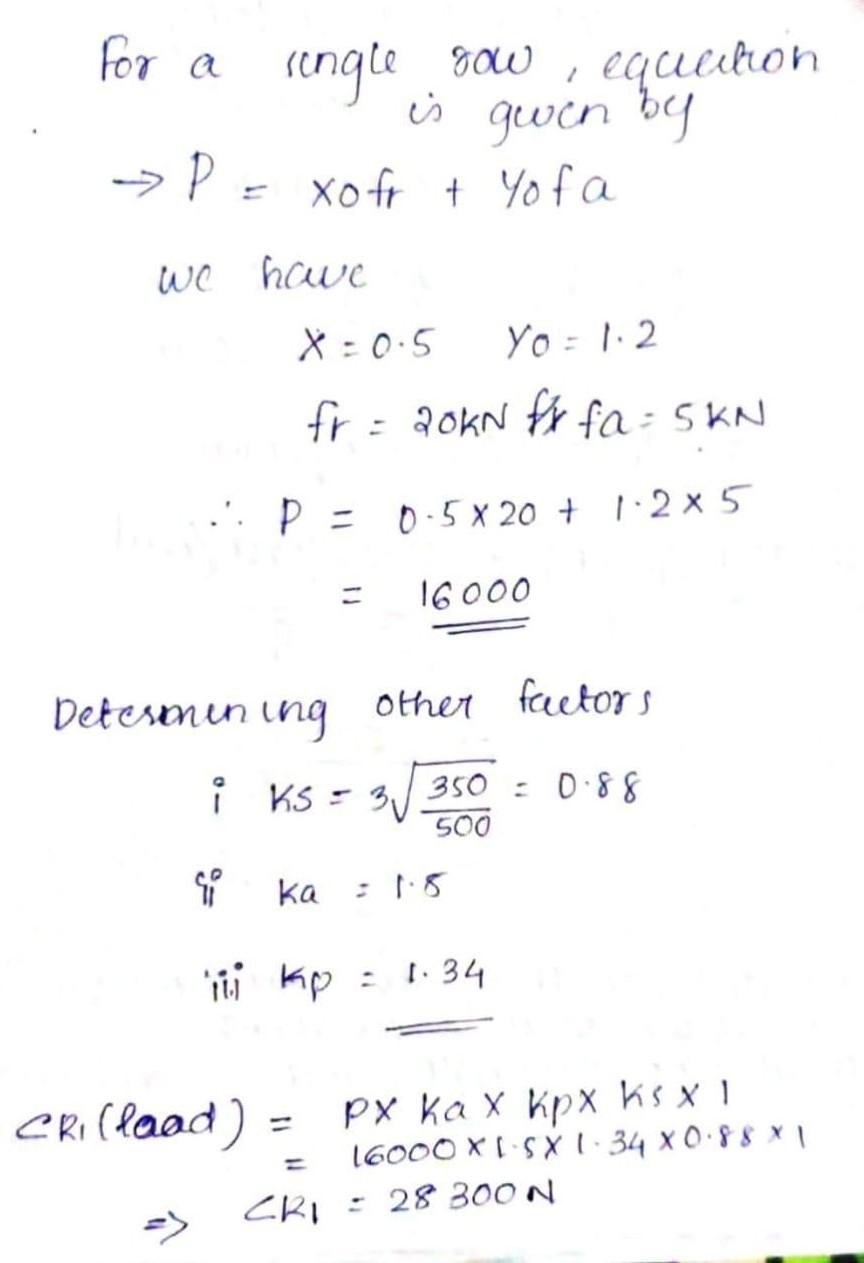 For a single row, equation
is given by
→ P = Xofr + Yofa
we have
X = 0.5 Yo = 1.2
fr = 20KN fa = 5KN
∴ P = 0.5 x 20 + 1.2 x 5
= 16000
Determining other factors
i KS = 3√350/500 = 0.88
ii ka = 1.5
iii Kp = 1.34
CR1 (load) = PX Ka X KpX Ks X 1
= 16000 X 1.5 X 1.34 X 0.88 X 1
⇒ CR1 = 28300N